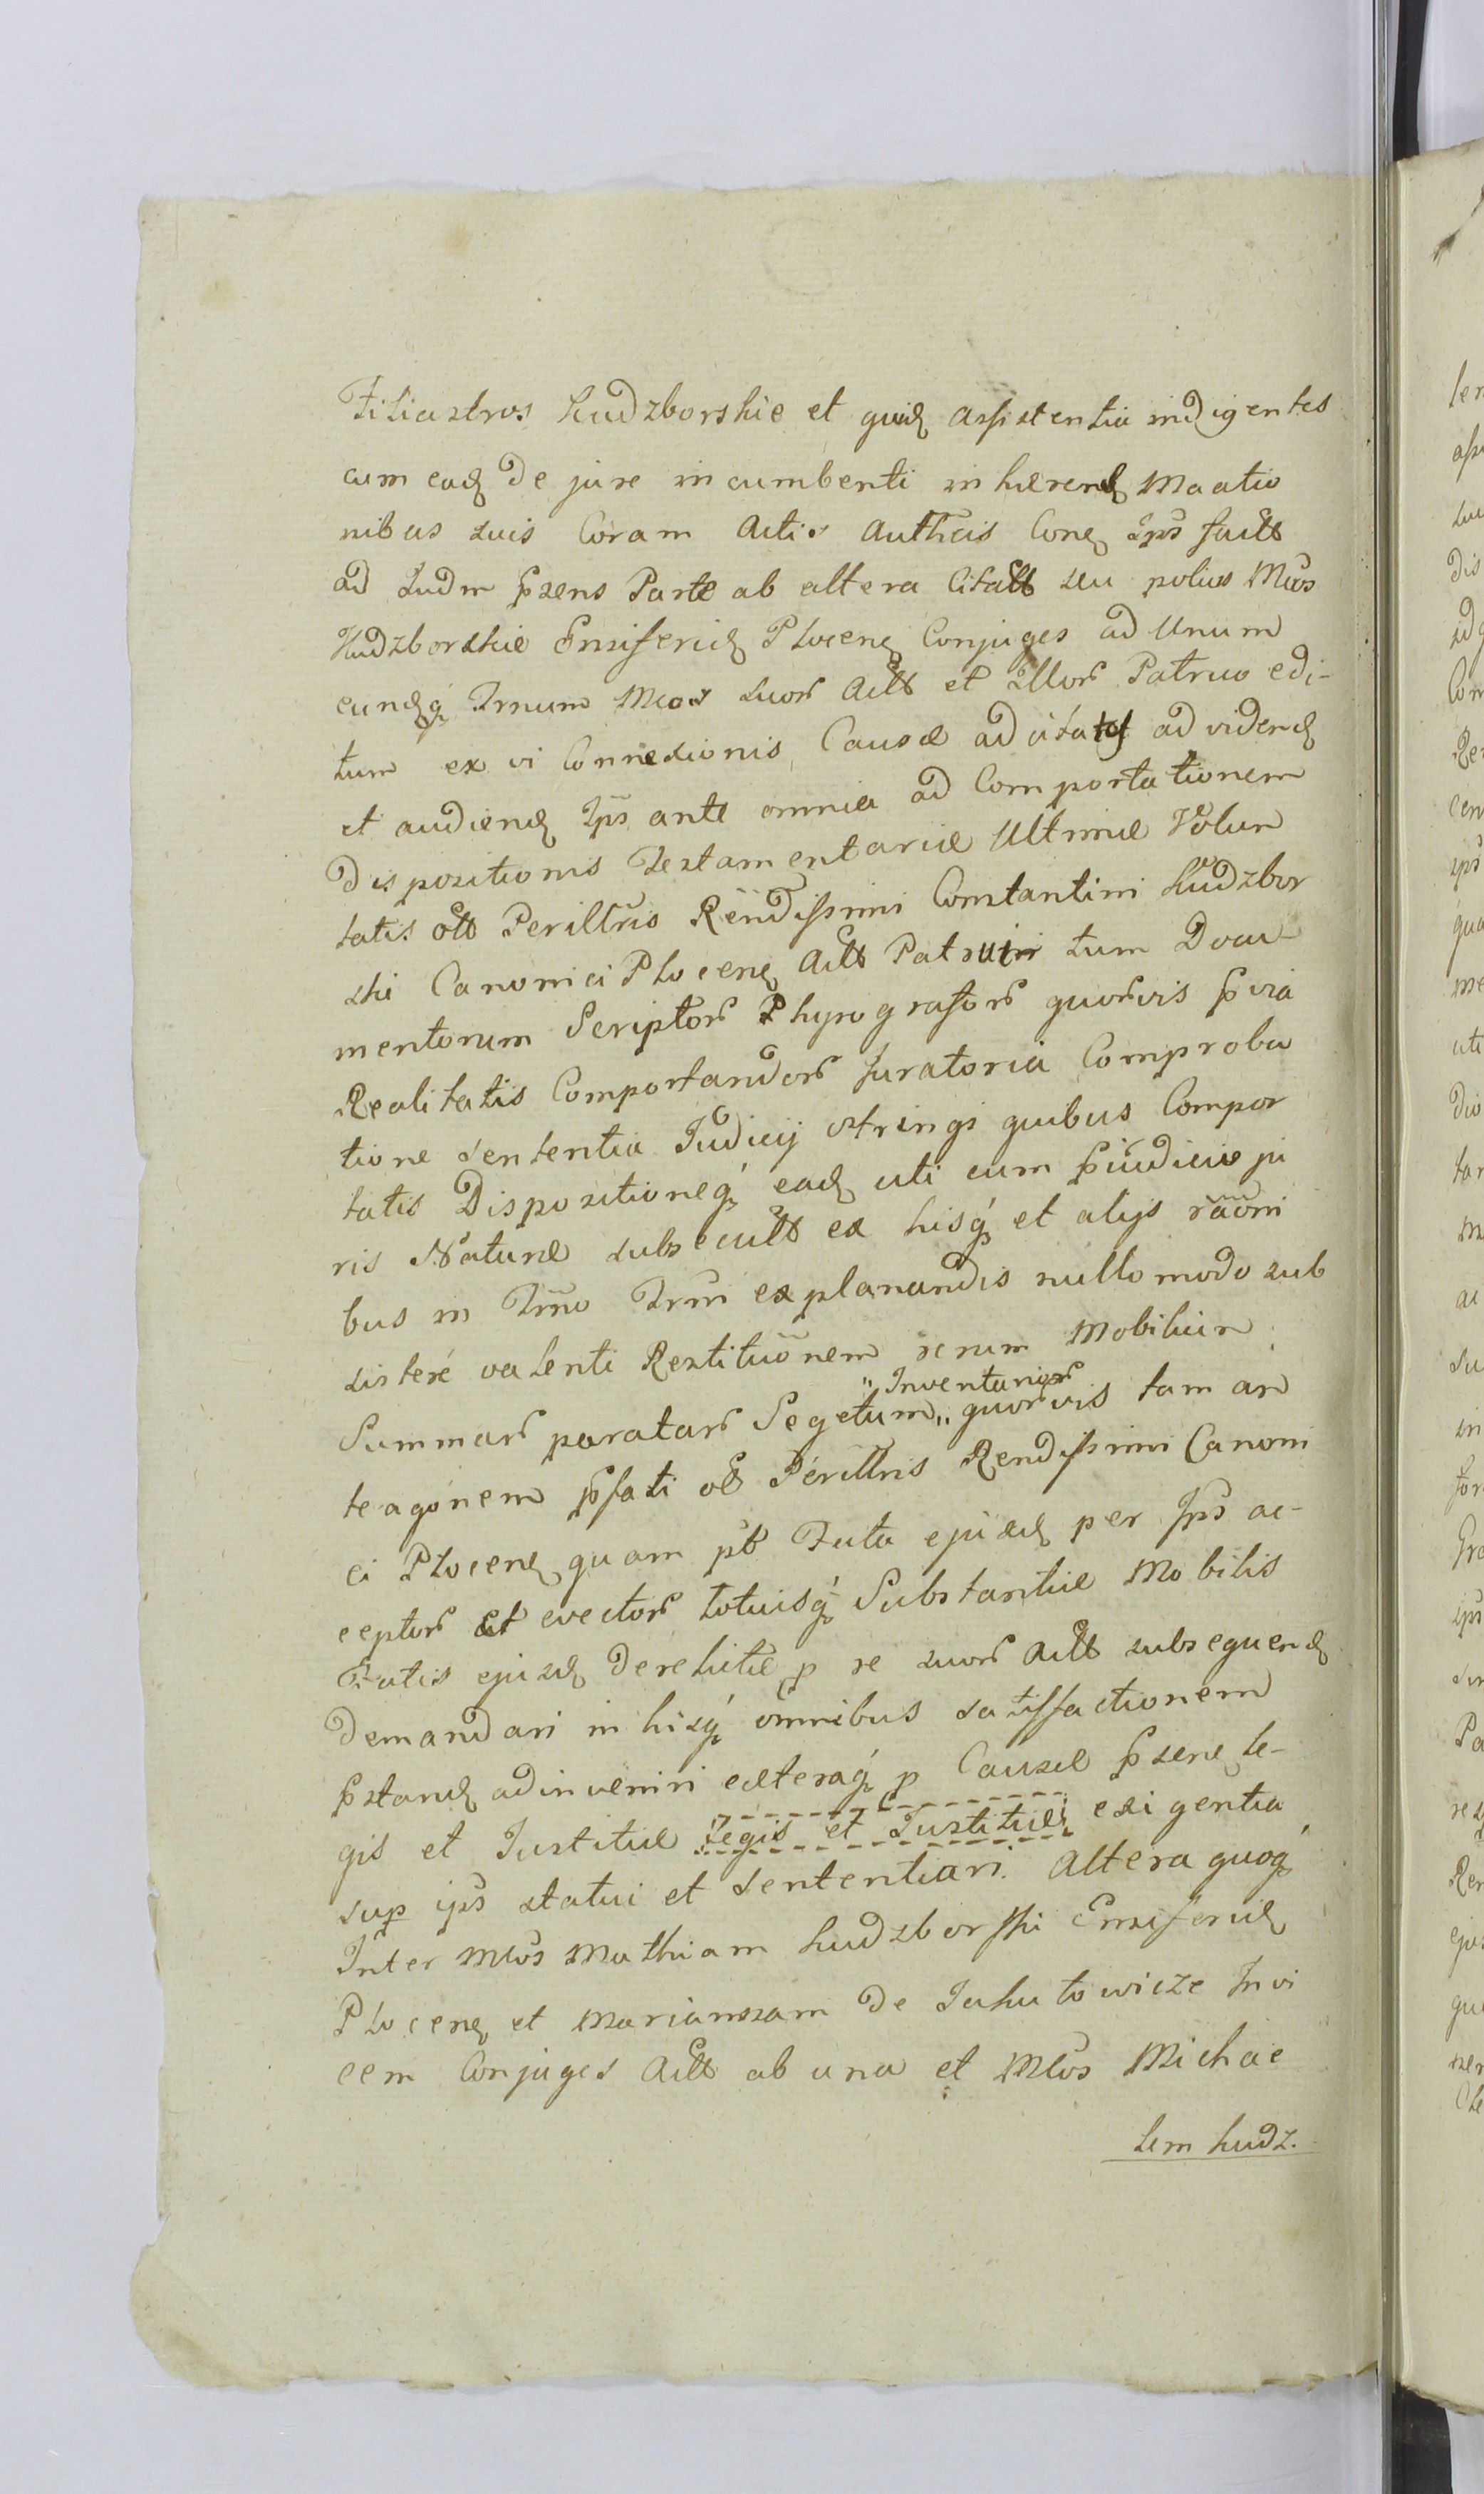 Filiastros Kudzborskie et quid assistentia indigentes
cum ead de jure incumbenti inhærend Maatio
nibus suis Coram Actis Auth̃cis Con Ips̃ fact̃
ad Judm p̃sens Parte ab altera Citat̃ seu potius Mços
Kudzborskie Ensiferid Plocen Conjuges ad Unum
eundq́ Trnum Mços suor̃ Act̃ et Illor̃ Patruo edi-
tum ex vi Connexionis Causæ adcitatos ad videnḍ
et audiend Ips̃ ante omnia ad Comportationem
Dispositionis Testamentariæ Ultimæ Volun
tatis ol̃ Perillr̃is Rendissimi Constantini Kudzbor
ski Canonici Plocen Act̃ Patrui tum Docu-
mentorum Scriptor̃ Chyrografor̃ quor̃vis p̃via
Realitatis Comportandor̃ Juratoria Comproba
tione Sententia Judicij stringi quibus Compor
tatis Dispositioneq́ ead uti cum p̃iudicio ju
ris Naturæ subsecut̃ ex hisq́ et alijs rãoni
bus in Trño Trñi explanandis nullo modo sub
sistere valenti Restituõnem rerum Mobilium
Summar̃ paratar̃ Segetum „Inventarior̃„ quor̃vis tam an
te agonem p̃fati ol̃ Perillris Rendissimi Canoni
ci Plocen quam pt̃ Fata ejusd per Ips̃ ac-
ceptor̃ et evector̃ totiusq́ Substantiæ Mobilis
Fatis ejusd derelictæ p se suor̃ Act̃ subsequend
demandari in hisq́ omnibus satisfactionem
p̃stand adinveniri cæteraq́ p Causæ p̃sen le-
gis et Justitiæ Legis et Justitiæ exigentia
sup ips̃ statui et sententiari. Altera quoq́
Inter Mços Mathiam Kudzborski Ensiferid
Plocen et Mariannam de Jakutowicze Invi
cem Conjuges Act̃ ab una et Mços Michae
lem Kudz.